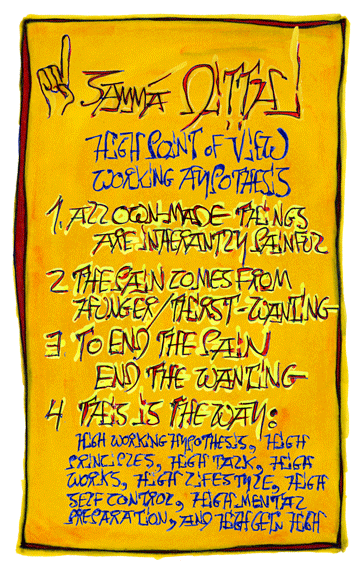 Sammá Ditthi
HIGH POINT OF VIEW
WORKING HYPOTHESIS
1. ALL OWN-MADE THINGS
ARE INHERANTLY PAINFUL
2 THE PAIN COMES FROM
HUNGER/THIRST-WANTING
3 TO END THE PAIN
END THE WANTING
4 THIS IS THE WAY:
HIGH WORKING HYPOTHESIS, HIGH
PRINCIPLES, HIGH TALK, HIGH
WORKS, HIGH LIFESTYLE, HIGH
SELF CONTROL, HIGH MENTAL
PREPARATION, AND HIGH GETN HIGH